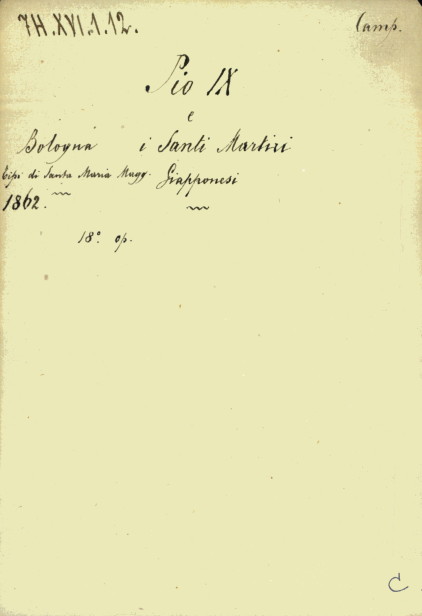 7H.XVI.1.12.
Camp.
Pio IX
e
Bologna i Santi Martiri
Tipi di Santa Maria Magg. Giapponesi
1862.
18º. op.
C